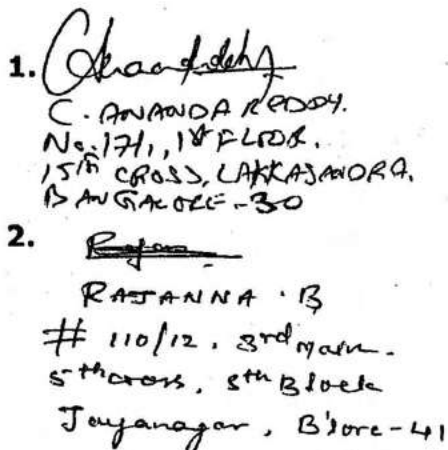 1.
C. ANANDA REDDY.
No. 171, 1st FLOOR.
15th CROSS, LAKKASANDRA.
BANGALORE-30
2.
RAJANNA . B
# 110/12, 3rd main.
5th cross, 5th Block
Jayanagar, B'lore-41